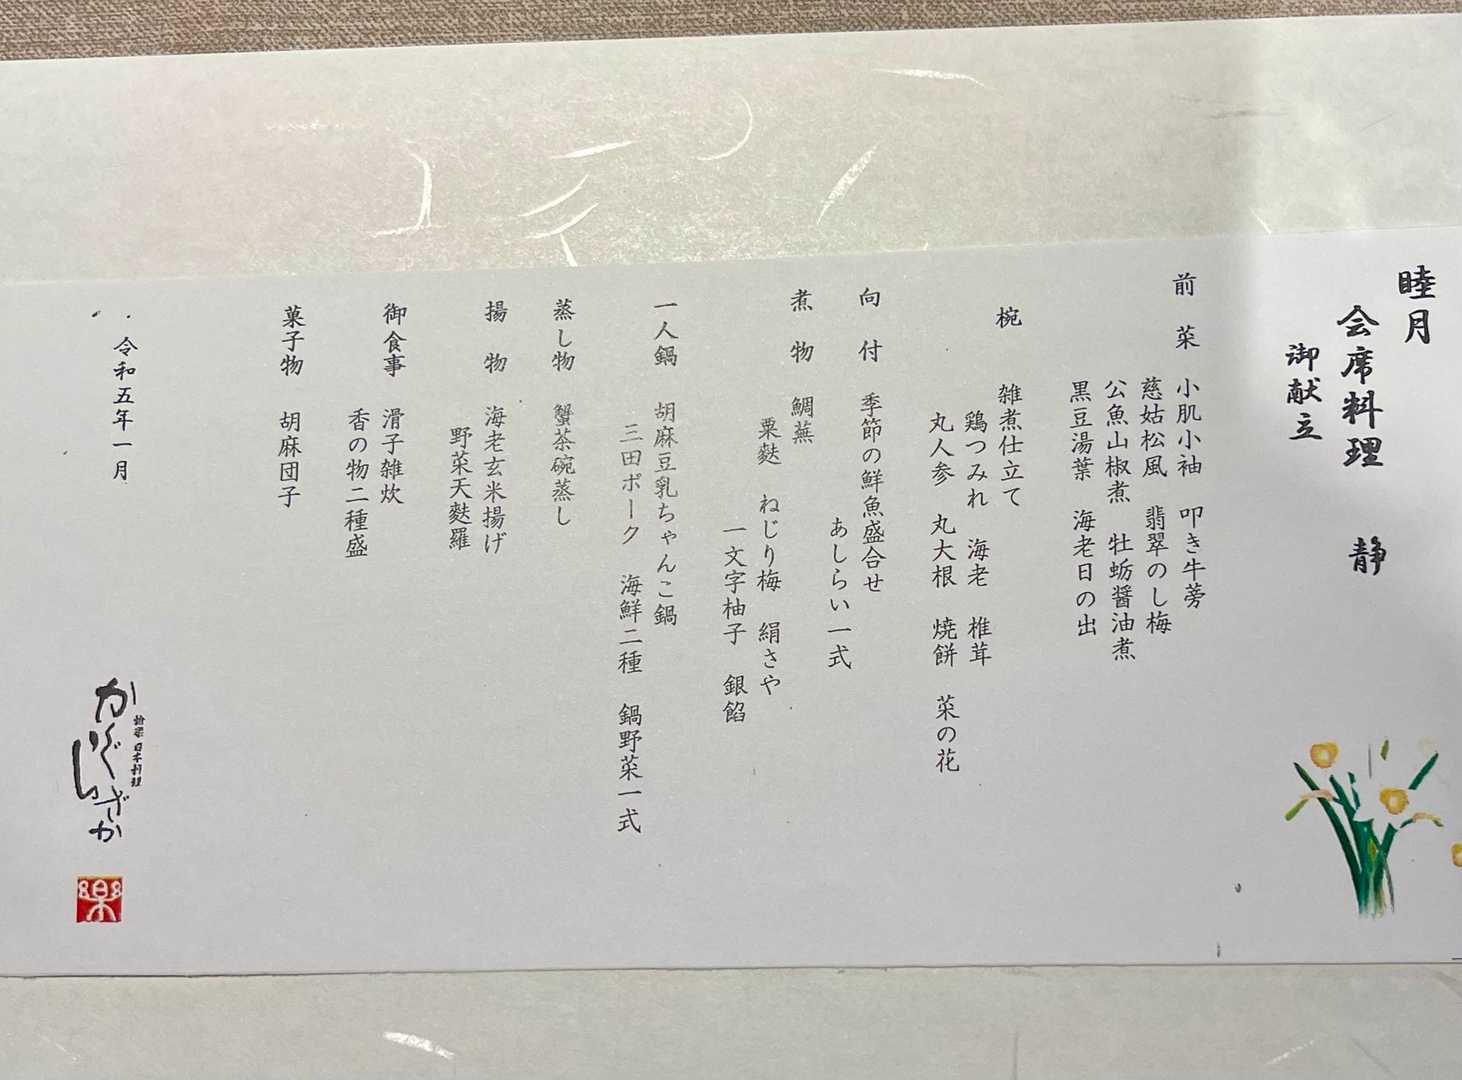 睦月
会席料理 静
御献立
前菜 小肌小袖 叩き牛蒡
慈姑松風 翡翠のし梅
公魚山椒煮 牡蛎醤油煮
黒豆湯葉 海老日の出
椀 雑煮仕立て
鶏つみれ 海老 椎茸
丸人参 丸大根 焼餅 菜の花
向付 季節の鮮魚盛合せ
あしらい一式
煮物 鯛蕪
粟麩 ねじり梅 絹さや
一文字柚子 銀餡
一人鍋 胡麻豆乳ちゃんこ鍋
三田ポーク 海鮮二種 鍋野菜一式
蒸し物 蟹茶碗蒸し
揚物 海老玄米揚げ
野菜天麩羅
御食事 滑子雑炊
香の物二種盛
菓子物 胡麻団子
令和五年一月
日本料理
かぐらざか
楽